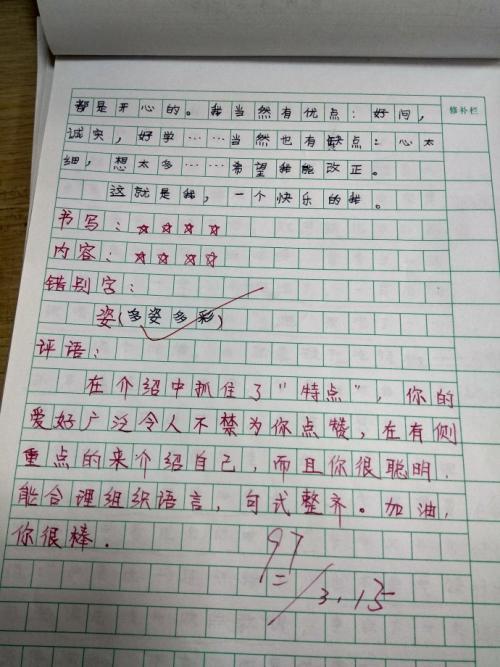 修补栏
都是开心的。我当然有优点：好问，
诚实，好学……当然也有缺点：心太
细，想太多……希望我能改正。
这就是我，一个快乐的我。
书写：☆☆☆☆
内容：☆☆☆☆
错别字：
姿(多姿多彩)
评语：
在介绍中抓住了"特点"，你的
爱好广泛令人不禁为你点赞，在有侧
重点的来介绍自己，而且你很聪明.
能合理组织语言，句式整齐。加油，
你很棒.
97
3.15